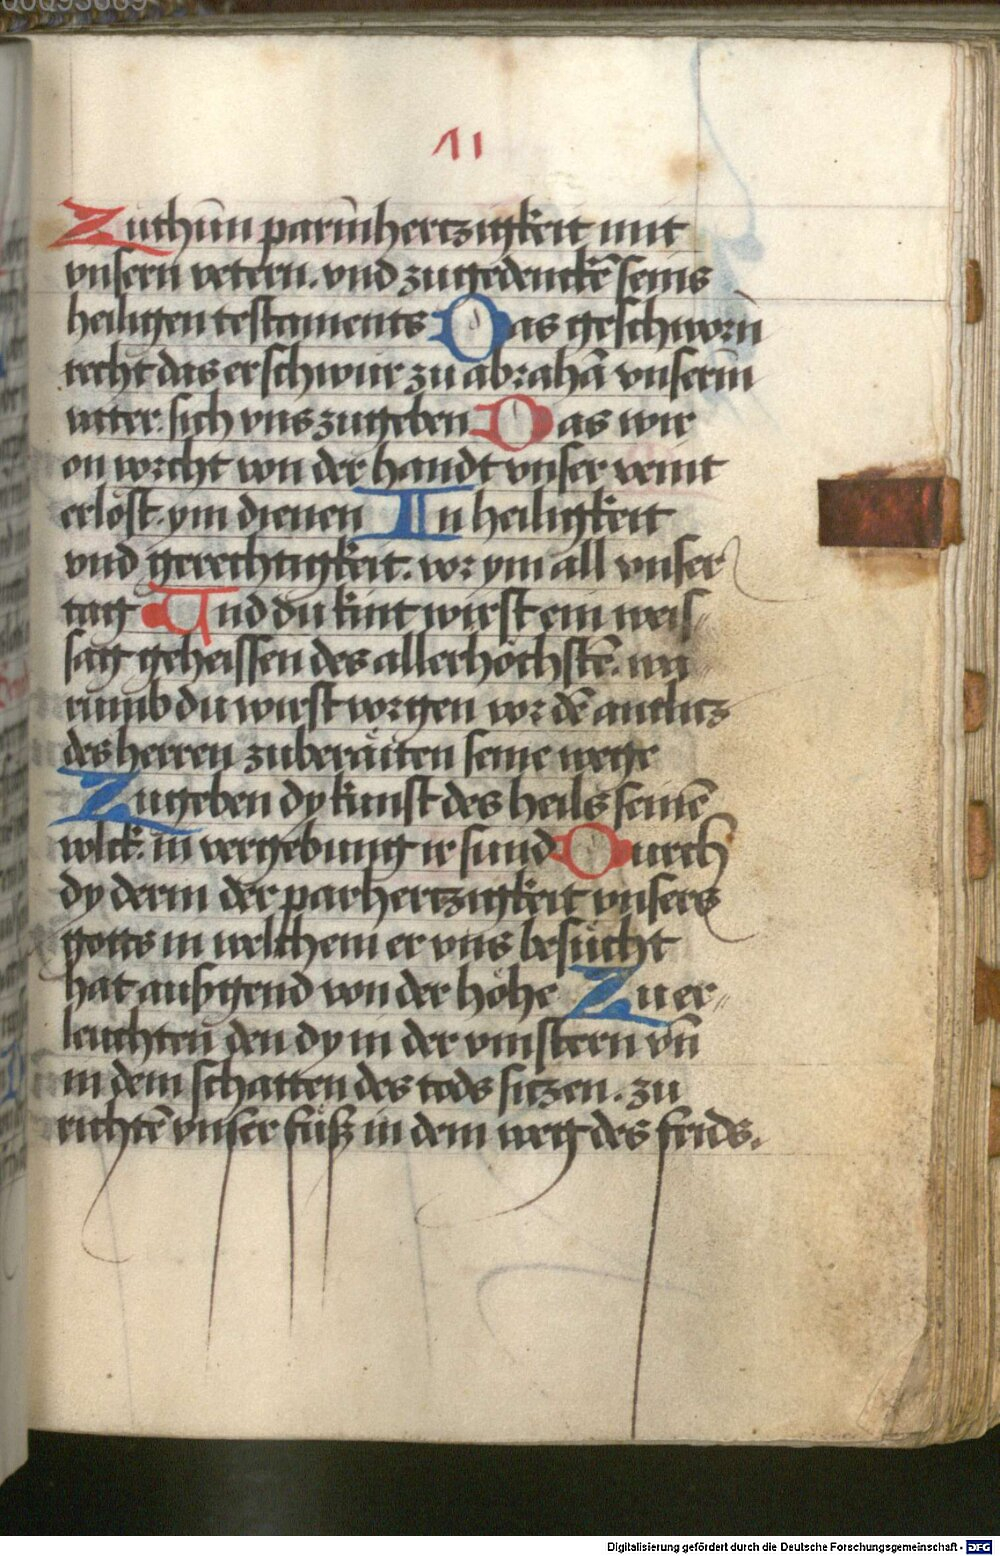 11
Zuthūn parm̄hertzigkeit mit
vnsern vetern. vnd zugedenckē seins
heiligen testaments Das geschworn̄
recht das er schwur zu abrahā vnserm̄
vater. sich vns zugeben Das wir
on vorcht von der handt vnser veint
erlöst. ym dienen In heiligkeit
vnd gerechtigkeit. vor ym all vnser
tag Und du kint wirst ein weis
sag geheissen des allerhöchstē. wa
rumb du wirst vorgen vor dē antlitz
des herren zuberäiten seine wege
Zugeben dy kunst des heils seinē
volck. in vergebung ir sund Durch
dy derm der parhertzigkeit vnsers
gotts in welchem er vns besücht
hat aufgend von der höhe Zu er
leuchten den dy in der vinstern vn̄
in dem schatten des tods sitzen. zu
richtē vnser füß in dem weg des frids.
Digitalisierung gefördert durch die Deutsche Forschungsgemeinschaft - DFG